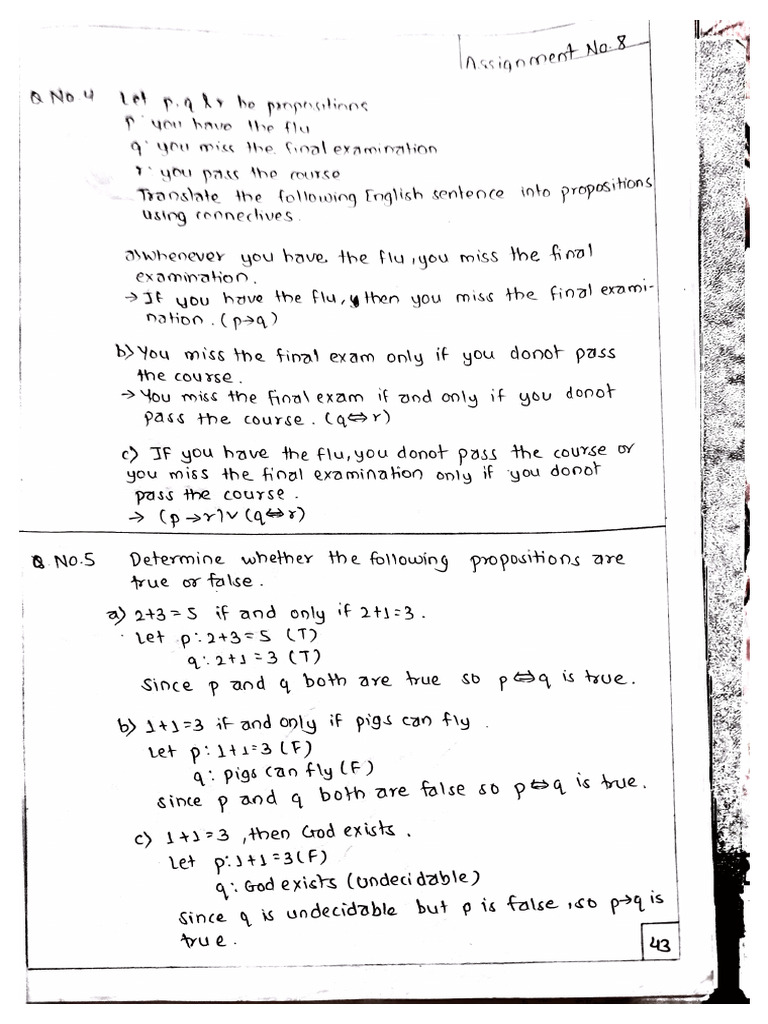 Assignment No. 8
Q No.4 Let p, q & r be propositions
p: you have the flu
q: you miss the final examination
r: you pass the course
Translate the following English sentence into propositions
using connectives.
a) Whenever you have the flu, you miss the final
examination.
→ If you have the flu, then you miss the final exami-
nation. (p→q)
b) You miss the final exam only if you donot pass
the course.
→ You miss the final exam if and only if you donot
pass the course. (q⇔r)
c) If you have the flu, you donot pass the course or
you miss the final examination only if you donot
pass the course.
→ (p→r)∨(q⇔r)
Q. No.5 Determine whether the following propositions are
true or false.
a) 2+3=5 if and only if 2+1=3.
Let p: 2+3=5 (T)
q: 2+1=3 (T)
Since p and q both are true so p⇔q is true.
b) 1+1=3 if and only if pigs can fly.
Let p: 1+1=3 (F)
q: pigs can fly (F)
since p and q both are false so p⇔q is true.
c) 1+1=3, then God exists.
Let p: 1+1=3 (F)
q: God exists (undecidable)
Since q is undecidable but p is false, so p→q is
true.
43